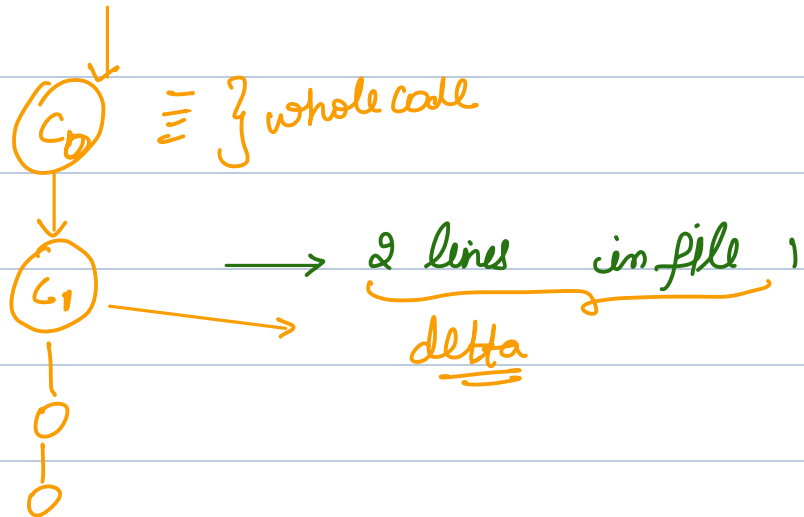 C0 ≡ } whole code
C1 → 2 lines in file 1
delta